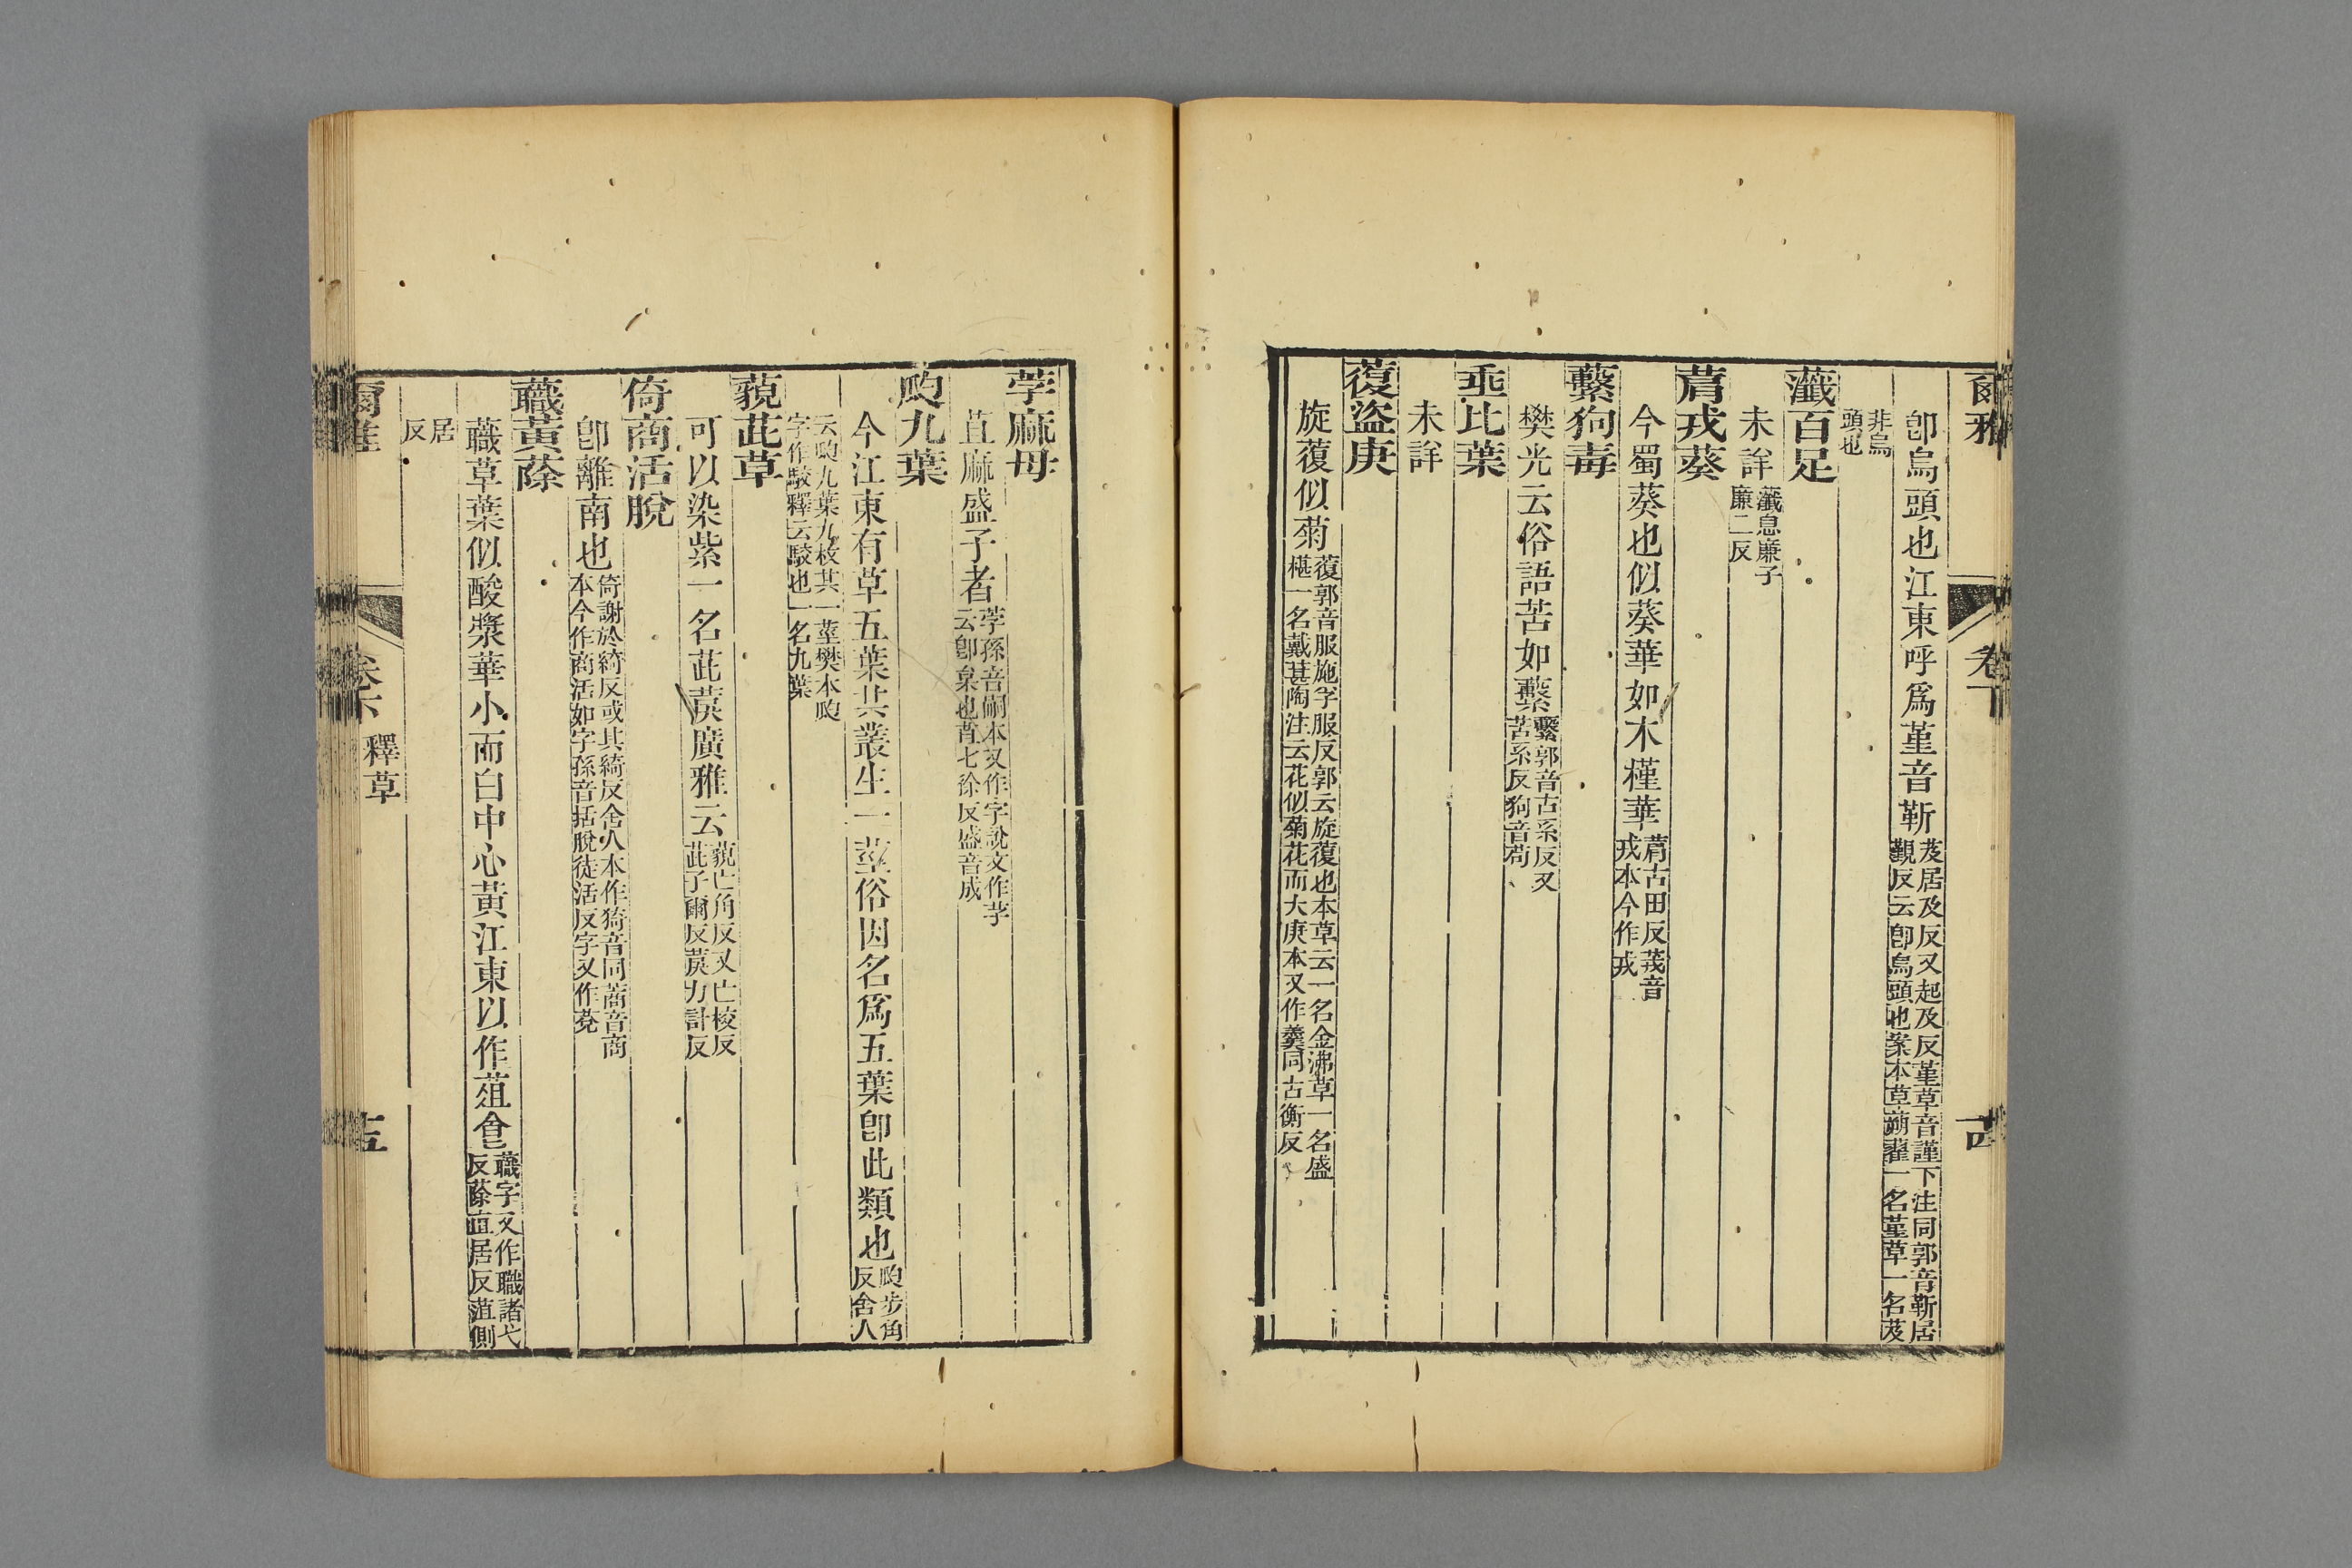 爾雅 卷下 十四
卽烏頭也江東呼爲堇音靳 芨居及反又起及反堇草音謹下注同郭音靳居覲反云卽烏頭也案本草蒴藋一名堇草一名芨
非烏頭也
虃百足
未詳 虃息廉子廉二反
菺戎葵
今蜀葵也似葵華如木槿華 菺古田反茙音戎本今作戎
蘻狗毒
樊光云俗語苦如蘻 蘻郭音古系反又苦系反狗音苟
垂比葉
未詳
蕧盜庚
旋蕧似菊 蕧郭音服施孚服反郭云旋蕧也本草云一名金沸草一名盛椹一名戴甚陶注云花似菊花而大庚本又作羹同古衡反
荸麻母
苴麻盛子者 荸孫音嗣本又作字說文作芓云卽枲也苴七徐反盛音成
瓝九葉
今江東有草五葉共叢生一莖俗因名爲五葉卽此類也 瓝步角反舍人
云瓝九葉九枚共一莖樊本瓝字作駮釋云駮也一名九葉
藐茈草
可以染紫一名茈䓞廣雅云 藐亡角反又亡校反茈子爾反䓞力計反
倚商活脫
卽離南也 倚謝於綺反或其綺反舍人本作猗音同蔏音商本今作商活如字孫音括脫徒活反字又作莌
蘵黃蒢
蘵草葉似酸漿華小而白中心黃江東以作葅食 蘵字又作職諸弋反蒢直居反菹側
居反
爾雅 卷下 釋草 十五